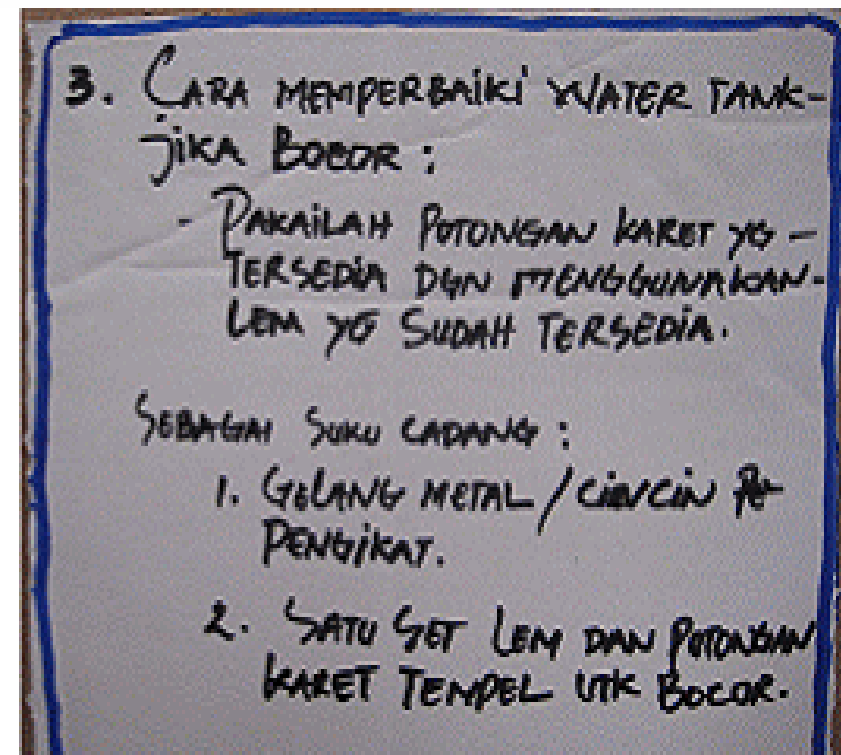 3. CARA MEMPERBAIKI WATER TANK-
JIKA BOCOR :
- PAKAILAH POTONGAN KARET YG -
TERSEDIA DGN MENGGUNAKAN-
LEM YG SUDAH TERSEDIA.
SEBAGAI SUKU CADANG :
1. GELANG METAL / CINCIN
PENGIKAT.
2. SATU SET LEM DAN POTONGAN
KARET TEMPEL UTK BOCOR.